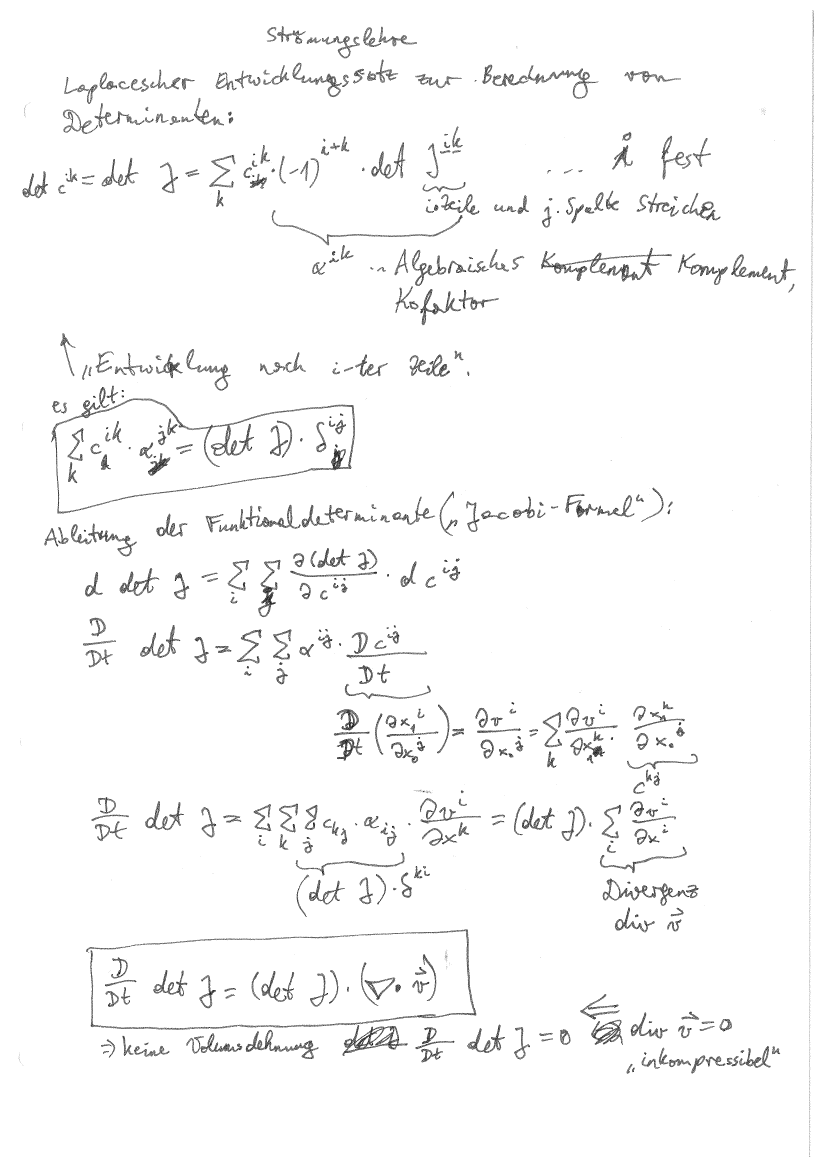 Strömungslehre
Laplacescher Entwicklungssatz zur Berechnung von
Determinanten:
det c^{ik} = det J = ∑_k c^{ik} · (-1)^{i+k} · det J^{ik} ... i fest
i. Zeile und j. Spalte Streichen
α^{ik} ... Algebraisches Komplement Komplement,
Kofaktor
↑ „Entwicklung nach i-ter Zeile".
es gilt:
∑_k c^{ik} · α^{jk} = (det J) · δ^{ij}
Ableitung der Funktionaldeterminante („Jacobi-Formel"):
d det J = ∑_i ∑_j ∂(det J)/∂c^{ij} · d c^{ij}
D/Dt det J = ∑_i ∑_j α^{ij} · Dc^{ij}/Dt
D/Dt (∂x_1^i/∂x_0^j) = ∂v^i/∂x_0^j = ∑_k ∂v^i/∂x_1^k · ∂x_1^k/∂x_0^j
c^{kj}
D/Dt det J = ∑_i ∑_k ∑_j c_{kj} · α_{ij} · ∂v^i/∂x^k = (det J) · ∑_i ∂v^i/∂x^i
(det J) · δ^{ki} Divergenz
div v⃗
D/Dt det J = (det J) · (∇ · v⃗)
⇒ keine Volumsdehnung D/Dt det J = 0 ⇐ div v⃗ = 0
„inkompressibel"